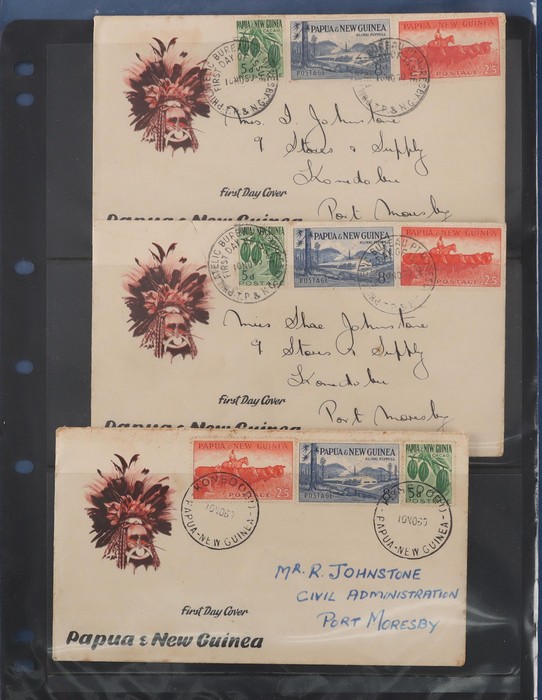 PAPUA & NEW GUINEA
CACAO
5d
PAPUA & NEW GUINEA
KLINKI PLYMILL
POSTAGE 8d
PAPUA & NEW GUINEA
POSTAGE 2/5
PHILATELIC BUREAU
FIRST DAY OF
10NO60
T.P. & N.G.
Mrs. I. Johnstone
9 Stores & Supply
Konedobu
Port Moresby
First Day Cover
Papua & New Guinea
NEW GUINEA
5d
POSTAGE
PAPUA & NEW GUINEA
KLINKI PLYMILL
POSTAGE 8d
PAPUA & NEW GUINEA
POSTAGE 2/5
PHILATELIC BUREAU
FIRST DAY
10NO
T.P. & N.G.
Miss Shae Johnstone
9 Stores & Supply
Konedobu
Port Moresby
First Day Cover
Papua & New Guinea
PAPUA & NEW GUINEA
POSTAGE 2/5
PAPUA & NEW GUINEA
KLINKI PLYMILL
POSTAGE 8d
PAPUA & NEW GUINEA
CACAO
5d
POSTAGE
KONFOOBU
10NO60
PAPUA-NEW GUINEA
10NO60
PAPUA-NEW GUINEA
MR. R. JOHNSTONE
CIVIL ADMINISTRATION
PORT MORESBY
First Day Cover
Papua & New Guinea